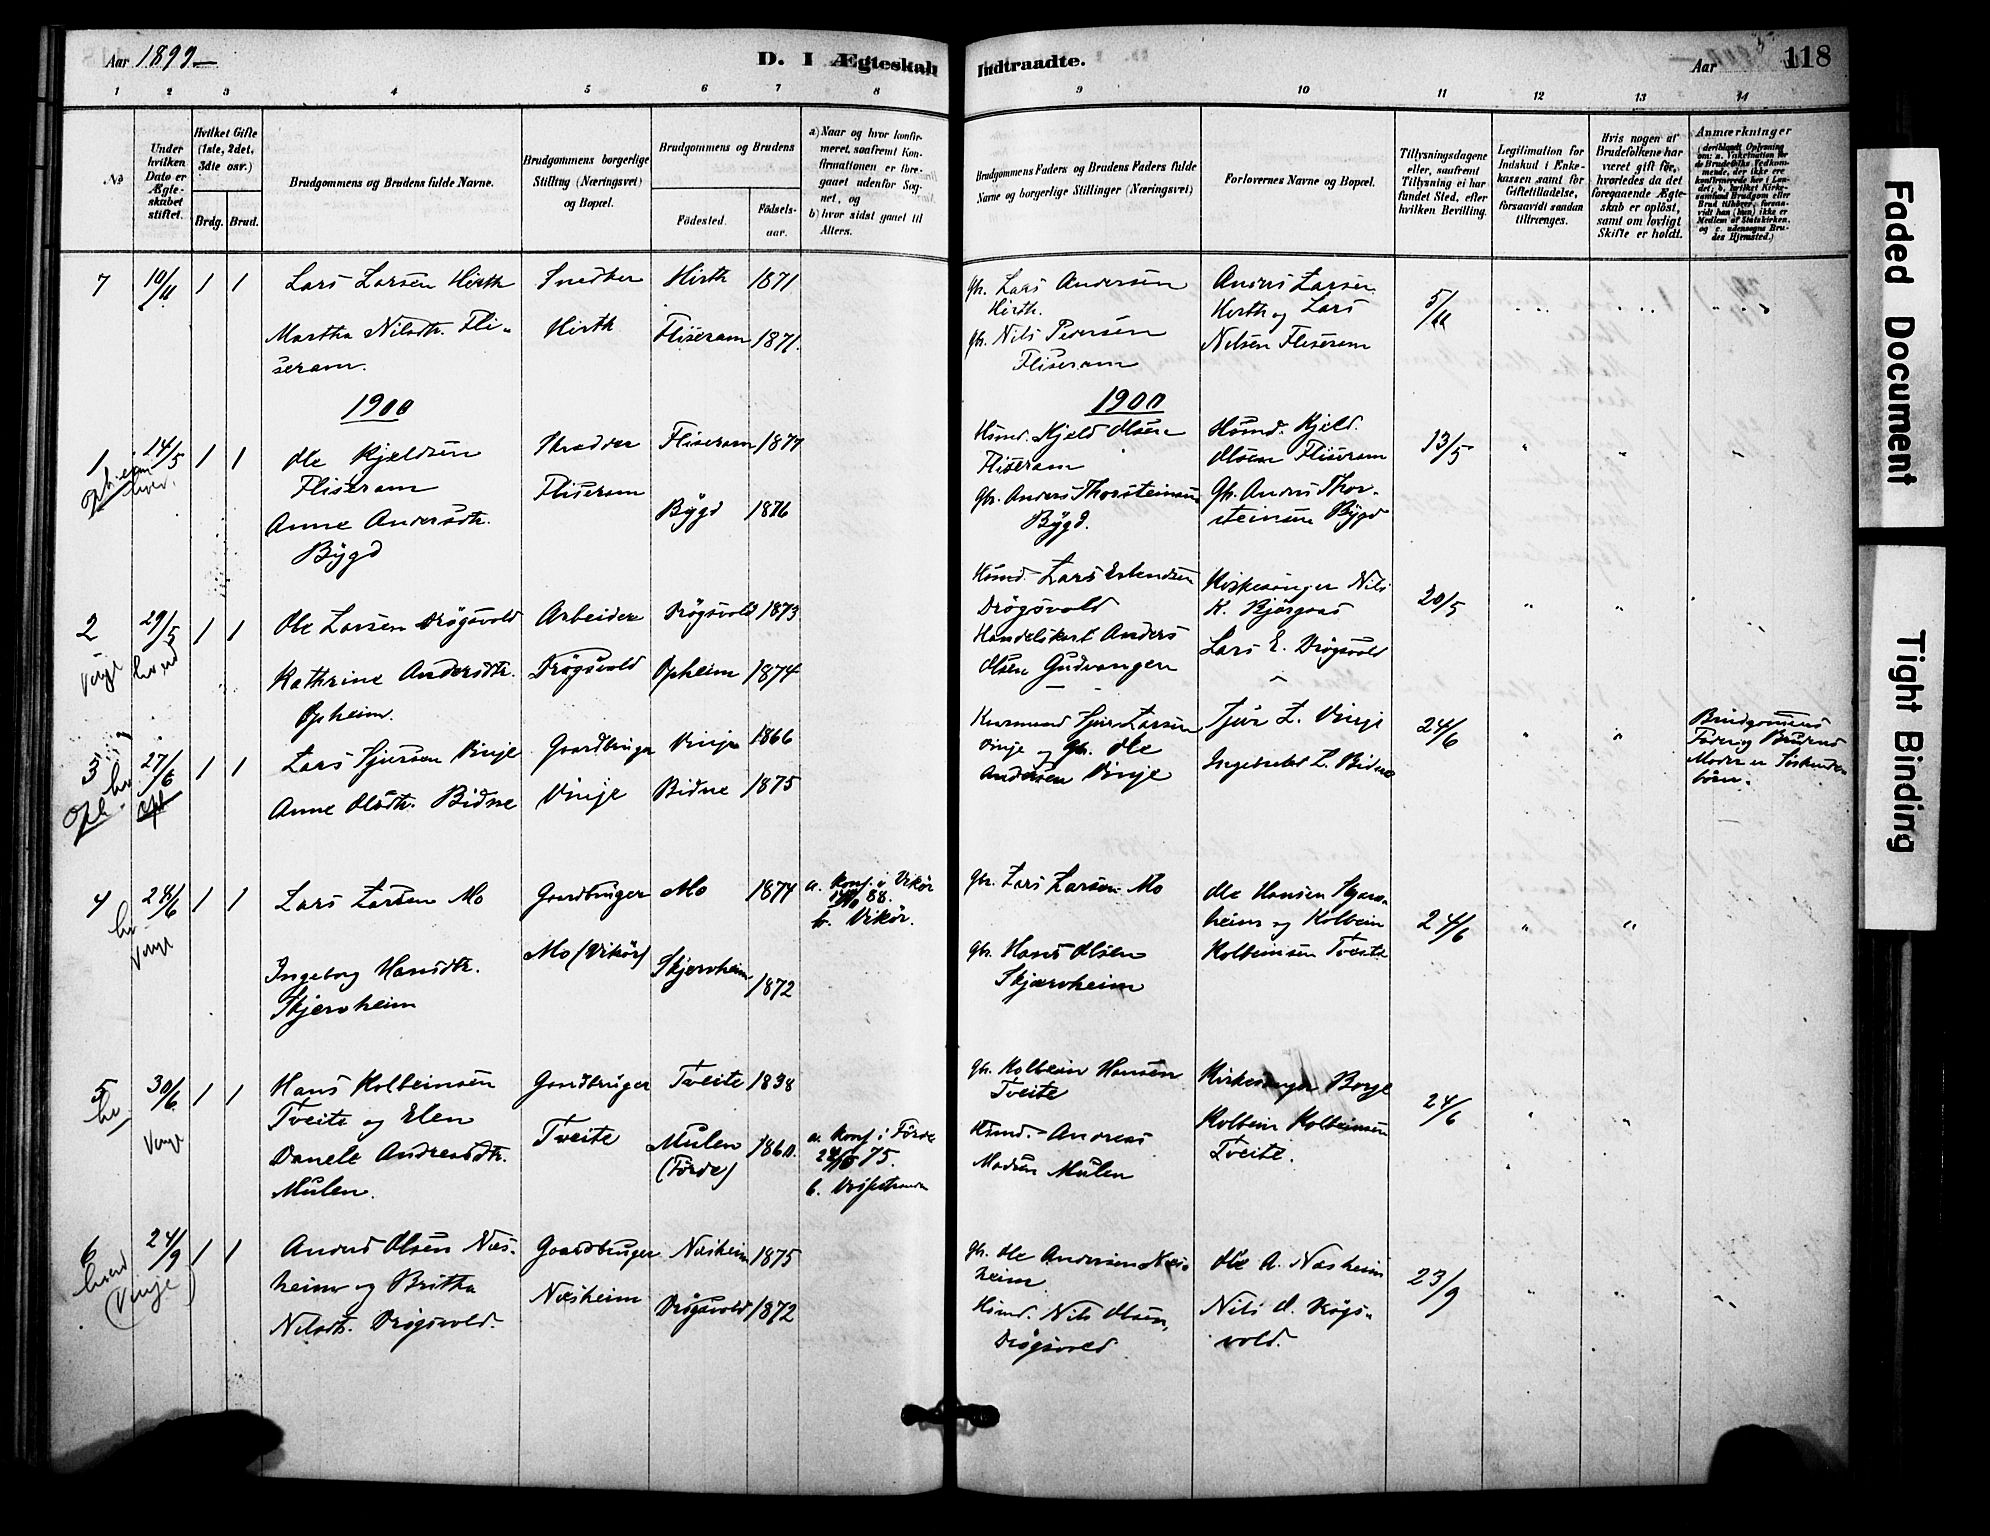 Aar 1899
D. I Ægteskab
Indtraadte.
Aar
118
1 2 3 4 5 6 7 8 9 10 11 12 13 14
No
Under hvilken Dato er Ægteskabet stiftet.
Hvilket Gifte (1ste, 2det, 3die osv.)
Brdg. Brud.
Brudgommens og Brudens fulde Navne.
Brudgommens borgerlige Stilling (Næringsvei) og Bopæl.
Brudgommens og Brudens
Födested.
Födselsaar.
a) Naar og hvor konfirmeret, saafremt Konfirmationen er foregaaet udenfor Sognet, og
b) hvor sidst gaaet til Alters.
Brudgommens Faders og Brudens Faders fulde Navne og borgerlige Stillinger (Næringsvei)
Forlovernes Navne og Bopæl.
Tillysningsdagene eller, saafremt Tillysning ei har fundet Sted, efter hvilken Bevilling.
Legitimation for Indskud i Enkekassen samt for Giftetilladelse, forsaavidt saadan tiltrænges.
Hvis nogen af Brudefolkene har været gift før, hvorledes da det foregaaende Ægteskab er oplöst, samt om lovligt Skifte er holdt.
Anmærkninger
7 10/11 1 1
Lars Larsen Hirth
Martha Nilsdtr. Fliseram.
Snedker
Hirth
Hirth 1871
Fliseram 1871.
Gbr. Lars Andersen
Hirth.
Gbr. Nils Pedersen
Fliseram
Anders Larsen
Hirth og Lars
Nilsen Fliseram
5/11
1900
1900
1 14/5 1 1
Ole Kjeldsen
Fliseram
Anne Andersdtr.
Bÿgd
Skrædder
Fliseram
Fliseram 1877
Bÿgd 1876
Husmd. Kjeld Olsen
Fliseram
Gbr. Anders Thorsteinsen
Bÿgd.
Husmd. Kjeld
Olsen Fliseram
Gbr. Anders Thorsteinsen Bÿgd
13/5
2 29/5 1 1
Vinje
Ole Larsen Drøgsvold
Kathrine Andersdtr.
Opheim.
Arbeider
Drøgsvold
Drøgsvold 1873
Opheim 1874
Husmd. Lars Erlendsen
Drøgsvold
Handelskarl Anders
Olsen Gudvangen
Kirkesanger Nils
K. Bjørgaas
Lars E. Drøgsvold
20/5
3 27/6 1 1
Oph.
Lars Sjursen Vinje
Anne Olsdtr. Bidne
Gaardbruger
Vinje
Vinje 1866
Bidne 1875
Sjur Larsen
Vinje og Gbr. Ole
Andersen Vinje
Sjur L. Vinje
Ingebrebt L. Bidne
24/6
Brudgommens
Fader og Brudens
Moder er Søskendebörn.
4 28/6 1 1
Vinje
Lars Larsen Mo
Ingeborg Hansdtr.
Skjerveheim
Gaardbruger
Mo (Vikör)
Mo 1874
Skjerveheim 1872
a. Konf. i Vikör
88.
b. Vikör.
Gbr. Lars Larsen Mo
Gbr. Hans Olsen
Skjerveheim
Ole Hansen Skjerveheim og Kolbein
Kolbeinsen Tveite
24/6
5 30/6 1 1
Vinje
Hans Kolbeinsen
Tveite og Elen
Danele Andreasdtr.
Mulen.
Gaardbruger
Tveite
Tveite 1838
Mulen
(Förde) 1860.
a. Konf. i Förde
75.
b. Vossestranden
Gbr. Kolbein Hansen
Tveite
Husmd. Andreas
Madsen Mulen
Kirkesanger Borge
Kolbein Kolbeinsen
Tveite.
24/6
6 24/9 1 1
(Vinje)
Anders Olsen Næsheim og Britha
Nilsdtr. Drøgsvold.
Gaardbruger
Næsheim
Næsheim 1875
Drøgsvold 1872
Gbr. Ole Andersen Næsheim
Husmd. Nils Olsen
Drøgsvold
Ole A. Næsheim
Nils O. Drøgsvold.
23/9
Faded Document
Tight Binding